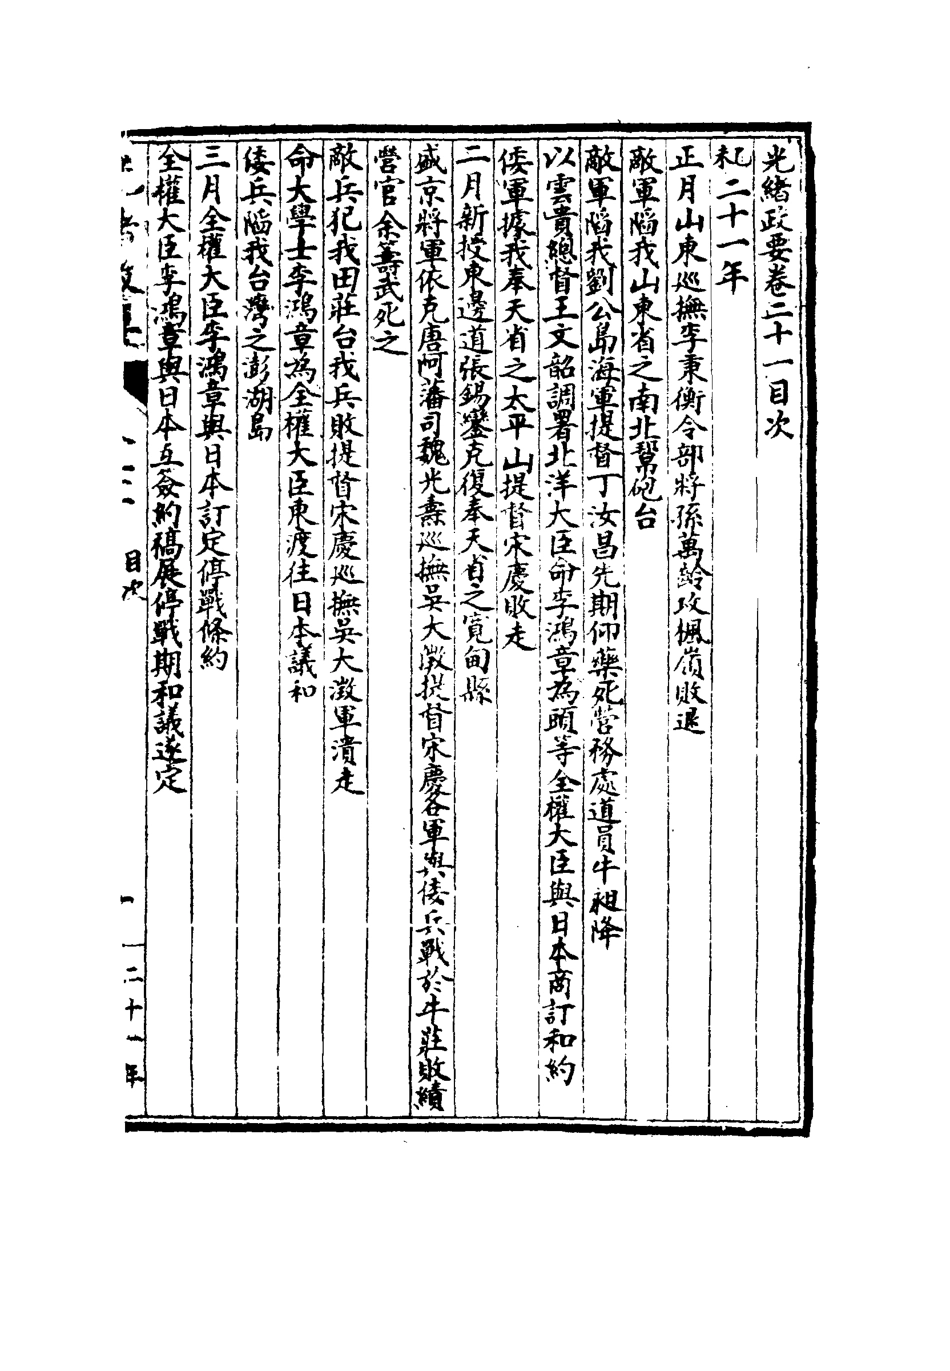 光緒政要卷二十一目次
乙未二十一年
正月山東巡撫李秉衡令部將孫萬齡攻楓嶺敗退
敵軍陷我山東省之南北幫砲台
敵軍陷我劉公島海軍提督丁汝昌先期仰藥死營務處道員牛昶降
以雲貴總督王文韶調署北洋大臣命李鴻章為頭等全權大臣與日本商訂和約
倭軍據我奉天省之太平山提督宋慶敗走
二月新授東邊道張錫鑾克復奉天省之寬甸縣
盛京將軍依克唐阿藩司魏光燾巡撫吳大澂提督宋慶各軍與倭兵戰於牛莊敗績
營官余籌武死之
敵兵犯我田莊台我兵敗提督宋慶巡撫吳大澂軍潰走
命大學士李鴻章為全權大臣東渡往日本議和
倭兵陷我台灣之澎湖島
三月全權大臣李鴻章與日本訂定停戰條約
全權大臣李鴻章與日本互簽約稿展停戰期和議遂定
目次
一
二十一年